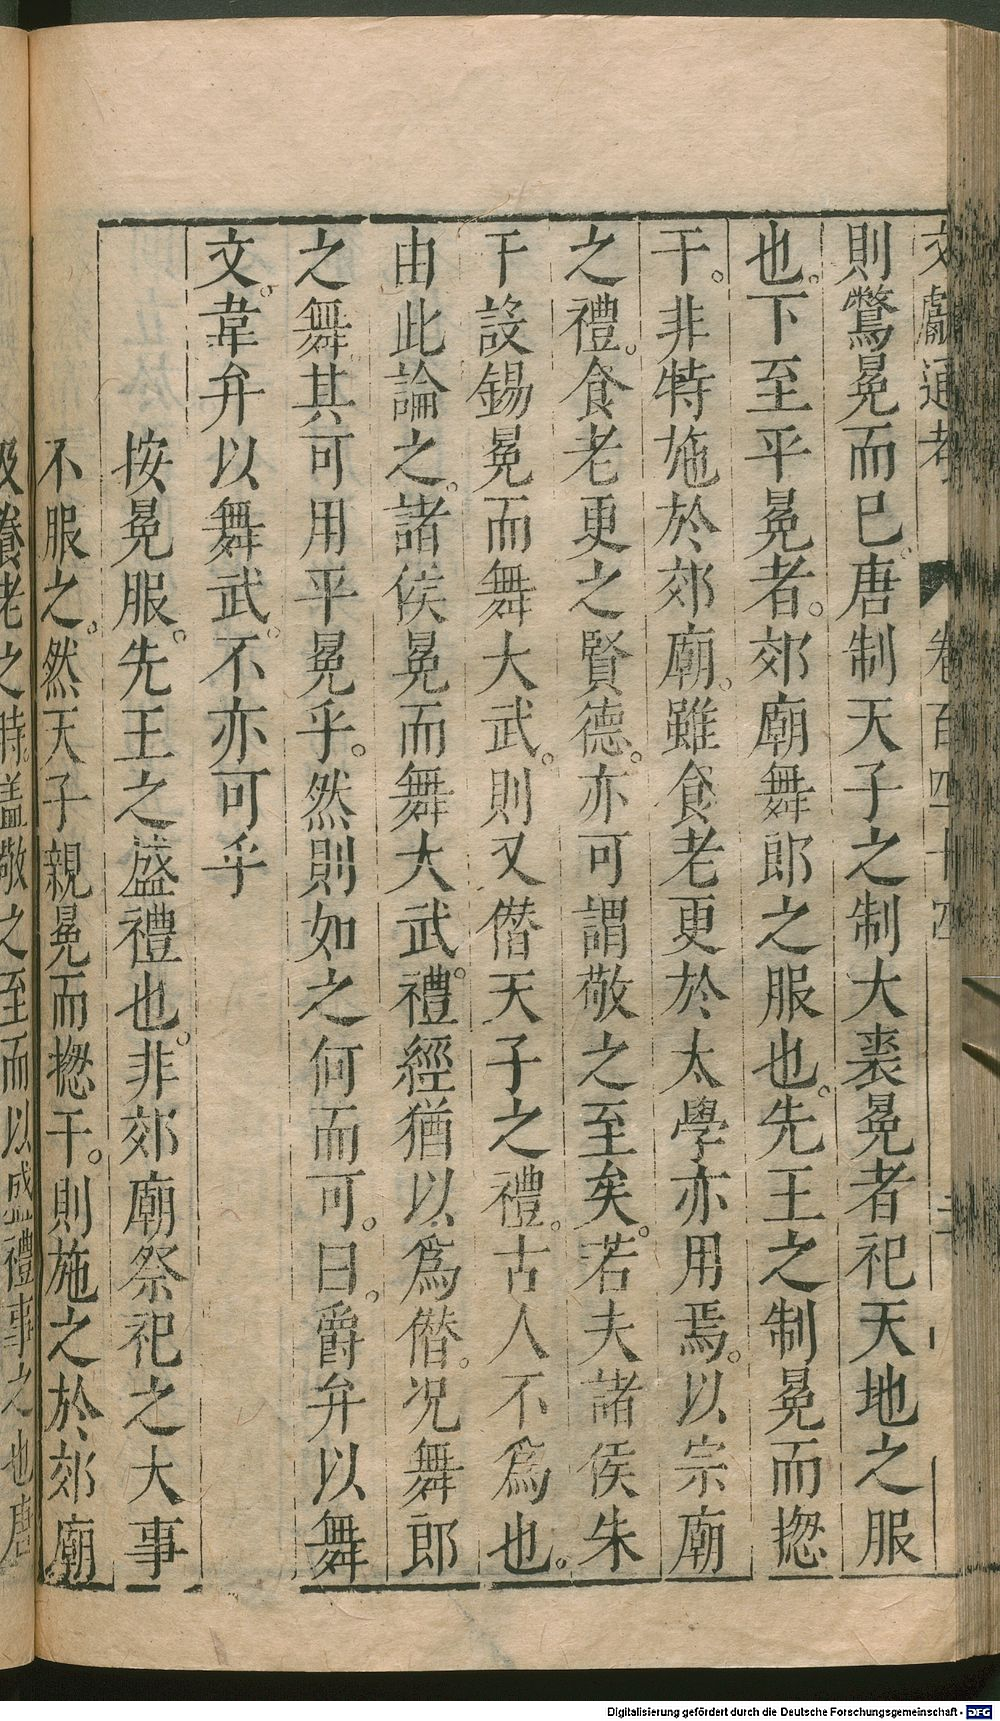 文獻通考 卷百四十四
則鷩冕而已。唐制天子之制大裘冕者祀天地之服
也。下至平冕者。郊廟舞郎之服也。先王之制冕而揔
干。非特施於郊廟。雖食老更於太學亦用焉。以宗廟
之禮。食老更之賢德。亦可謂敬之至矣。若夫諸侯朱
干設錫冕而舞大武。則又僣天子之禮。古人不爲也。
由此論之。諸侯冕而舞大武。禮經猶以爲僣。况舞郎
之舞其可用平冕乎。然則如之何而可。曰。爵弁以舞
文。韋弁以舞武。不亦可乎
按冕服。先王之盛禮也。非郊廟祭祀之大事
不服之。然天子親冕而揔干。則施之於郊廟
及養老之時。盖敬之至而以盛禮事之也唐
Digitalisierung gefördert durch die Deutsche Forschungsgemeinschaft - DFG